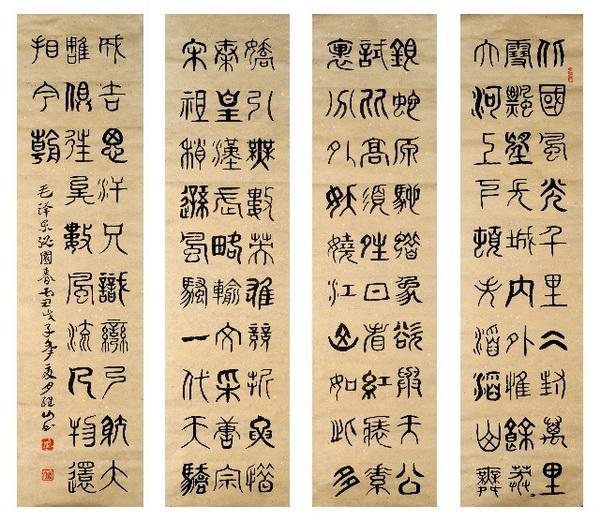 北國風光千里冰封萬里
雪飄望長城內外惟餘莽
大河上下頓失滔滔山舞
銀蛇原馳蠟象欲與天公
試比高須晴日看紅裝素
裹分外妖嬈江山如此多
嬌引無數英雄競折腰惜
秦皇漢武略輸文采唐宗
宋祖稍遜風騷一代天驕
成吉思汗只識彎弓射大
雕俱往矣數風流人物還
看今朝
毛泽东沁園春戊子年夏月